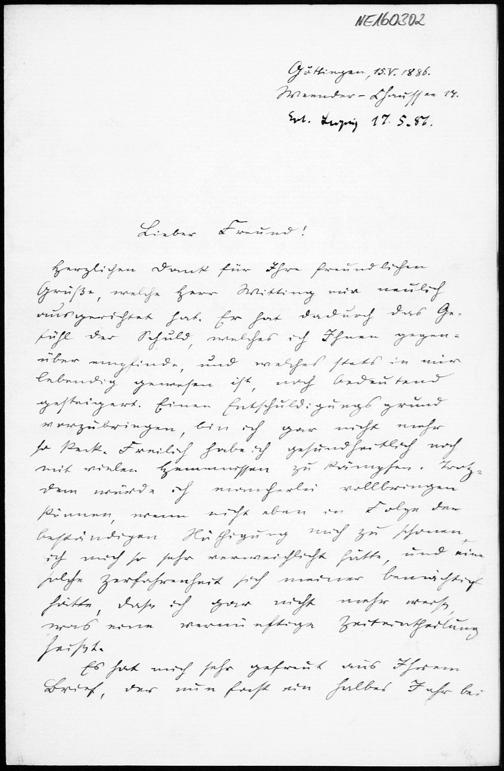 NE160302
Göttingen, 15.V.1886.
Weender-Chaussee 14.
17.5.86.
Lieber Freund!
Herzlichen Dank für Ihre freundlichen
Grüße, welche Herr Witting mir neulich
ausgerichtet hat. Er hat dadurch das Ge-
fühl der Schuld, welches ich Ihnen gegen-
über empfinde, und welches stets in mir
lebendig gewesen ist, noch bedeutend
gesteigert. Einen Entschuldigungsgrund
vorzubringen, bin ich gar nicht mehr
so keck. Freilich habe ich gesundheitlich noch
mit vielen Hemmnissen zu kämpfen. Trotz-
dem würde ich mancherlei vollbringen
können, wenn nicht eben in Folge der
beständigen Nöthigung mich zu schonen,
ich mich so sehr verweichlicht hätte, und eine
solche Zerfahrenheit sich meiner bemächtigt
hätte, dass ich gar nicht mehr weiß,
was eine vernünftige Zeiteintheilung
heißt.
Es hat mich sehr gefreut aus Ihrem
Brief, der nun fast ein halbes Jahr bei